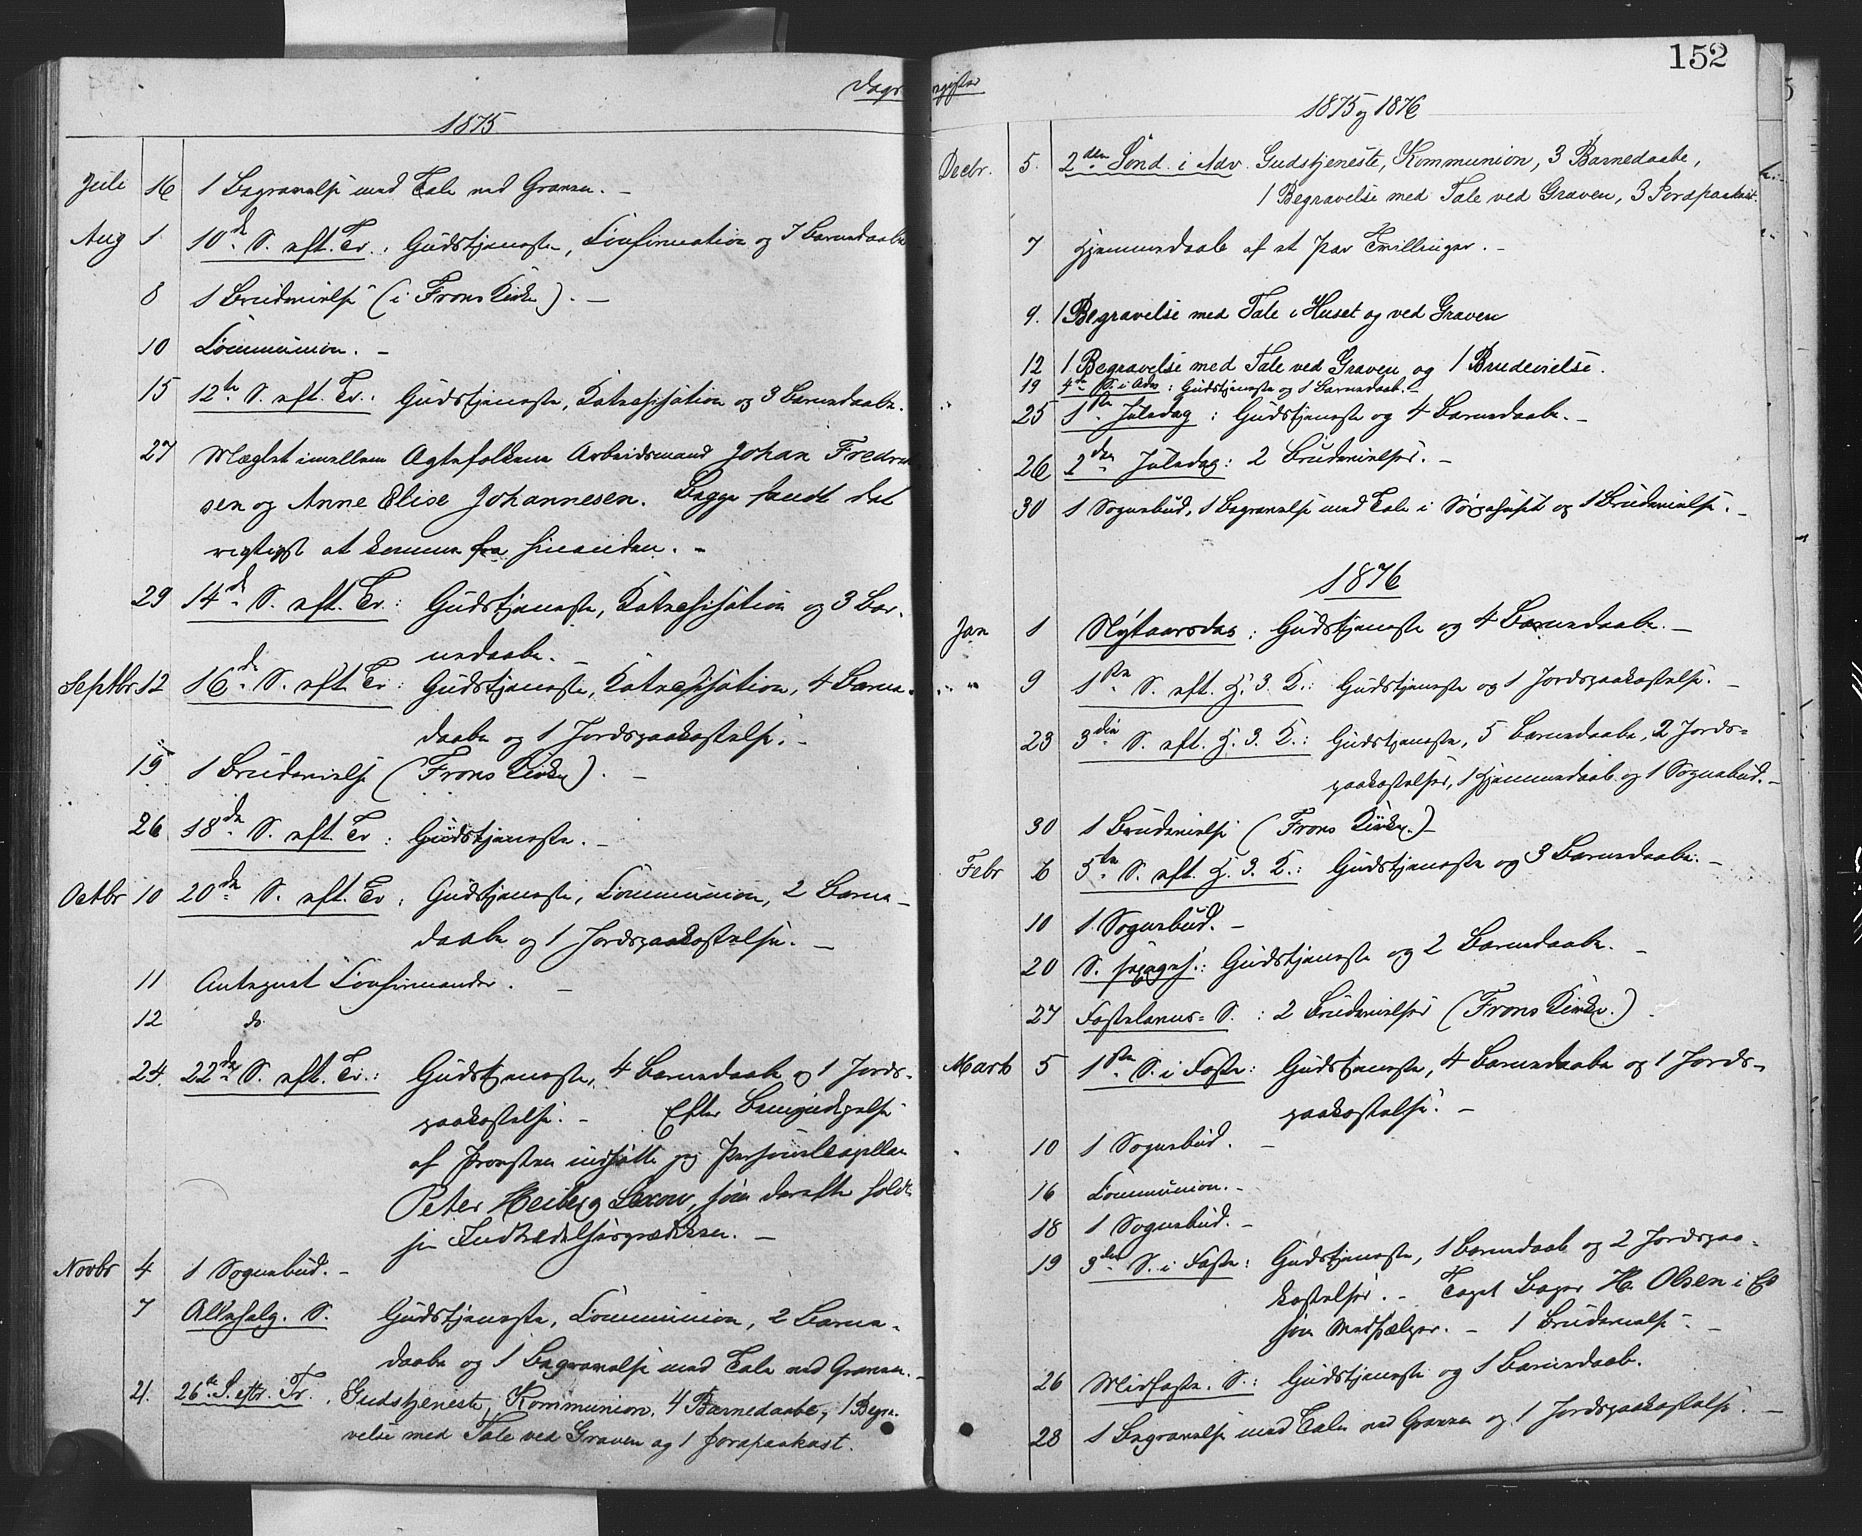 Dagsregister
1875
Juli 16 1 Begravelse med Tale ved Graven. –
Aug 1 10de S. eft. Tr.: Gudstjeneste, Confirmation og 7 Barnedaabe
8 1 Brudevielse (i Frons Kirke). –
10 Communion. –
15 12te S. eft. Tr.: Gudstjeneste, Katechisation og 3 Barnedaabe.
27 Mæglet imellem Ægtefolkene Arbeidsmand Johan Fredrik
sen og Anne Elise Johannesen. Begge fandt det
rigtigst at komme fra hinanden. –
29 14de S. eft. Tr.: Gudstjeneste, Katechisation og 3 Bar-
nedaabe. –
Septbr 12 16de S. eft. Tr.: Gudstjeneste, Katechisation, 4 Barne-
daabe og 1 Jordspaakastelse. –
15 1 Brudevielse (Frons Kirke). –
26 18de S. eft. Tr: Gudstjeneste. –
Octbr 10 20de S. eft. Tr: Gudstjeneste, Communion, 2 Barne-
daabe og 1 Jordspaakastelse. –
11 Antegnet Confirmander. –
12 do
24. 22de S. eft. Tr.: Gudstjeneste, 4 Barnedaabe og 1 Jords-
paakastelse. – Efter Bemyndigelse
af Provsten indsatte jeg Personelcapellan
Peter Heiberg Lexow, som derefter holdt
sin Indtrædelsesprædiken. –
Novbr 4 1 Sognebud. –
7 Allehelg. S. Gudstjeneste, Communion, 2 Barne-
daabe og 1 Begravelse med Tale ved Graven. –
21. 26te S. eft. Tr. Gudstjeneste, Kommunion, 4 Barnedaabe, 1 Begra-
velse med Tale ved Graven og 1 Jordpaakast.
152
1875 og 1876
Decbr. 5. 2den Sønd. i Adv. Gudstjeneste, Kommunion, 3 Barnedaabe,
1 Begravelse med Tale ved Graven, 3 Jordpaakast.
7 Hjemmedaab af et Par Tvillinger. –
9. 1 Begravelse med Tale i Huset og ved Graven
12 1 Begravelse med Tale ved Graven og 1 Brudevielse.
19 4de S. i Adv: Gudstjeneste og 1 Barnedaab. –
25 1ste Juledag: Gudstjeneste og 4 Barnedaabe. –
26 2den Juledag: 2 Brudevielser. –
30 1 Sognebud, 1 Begravelse med Tale i Sørgehuset og 1 Brudevielse. –
1876
Jan 1 Nytaarsdag: Gudstjeneste og 4 Barnedaabe. –
" " 9 1ste S. eft. H. 3. K.: Gudstjeneste og 1 Jordspaakastelse. –
23 3die S. eft. H. 3. K.: Gudstjeneste, 5 Barnedaabe, 2 Jords-
paakastelser, 1 Hjemmedaab og 1 Sognebud. –
30 1 Brudevielse (Frons Kirke.) –
Febr 6 5te S. eft. H. 3. K.: Gudstjeneste og 3 Barnedaabe. –
10 1 Sognebud. –
20 S. sexages.: Gudstjeneste og 2 Barnedaabe. –
27 Fastelavns-S.: 2 Brudevielser (Frons Kirke.)
Marts 5 1ste S. i Faste: Gudstjeneste, 4 Barnedaabe og 1 Jords-
paakastelse. –
10 1 Sognebud. –
16 Communion. –
18 1 Sognebud. –
19 3die S. i Faste: Gudstjeneste, 1 Barnedaab og 2 Jordspaa-
kastelser. – Taget Bager H. Olsen i Ed
som Medhjælper. – 1 Brudevielse. –
26 Midfaste. S.: Gudstjeneste og 1 Barnedaab.
28 1 Begravelse med Tale ved Graven og 1 Jordspaakastelse. –